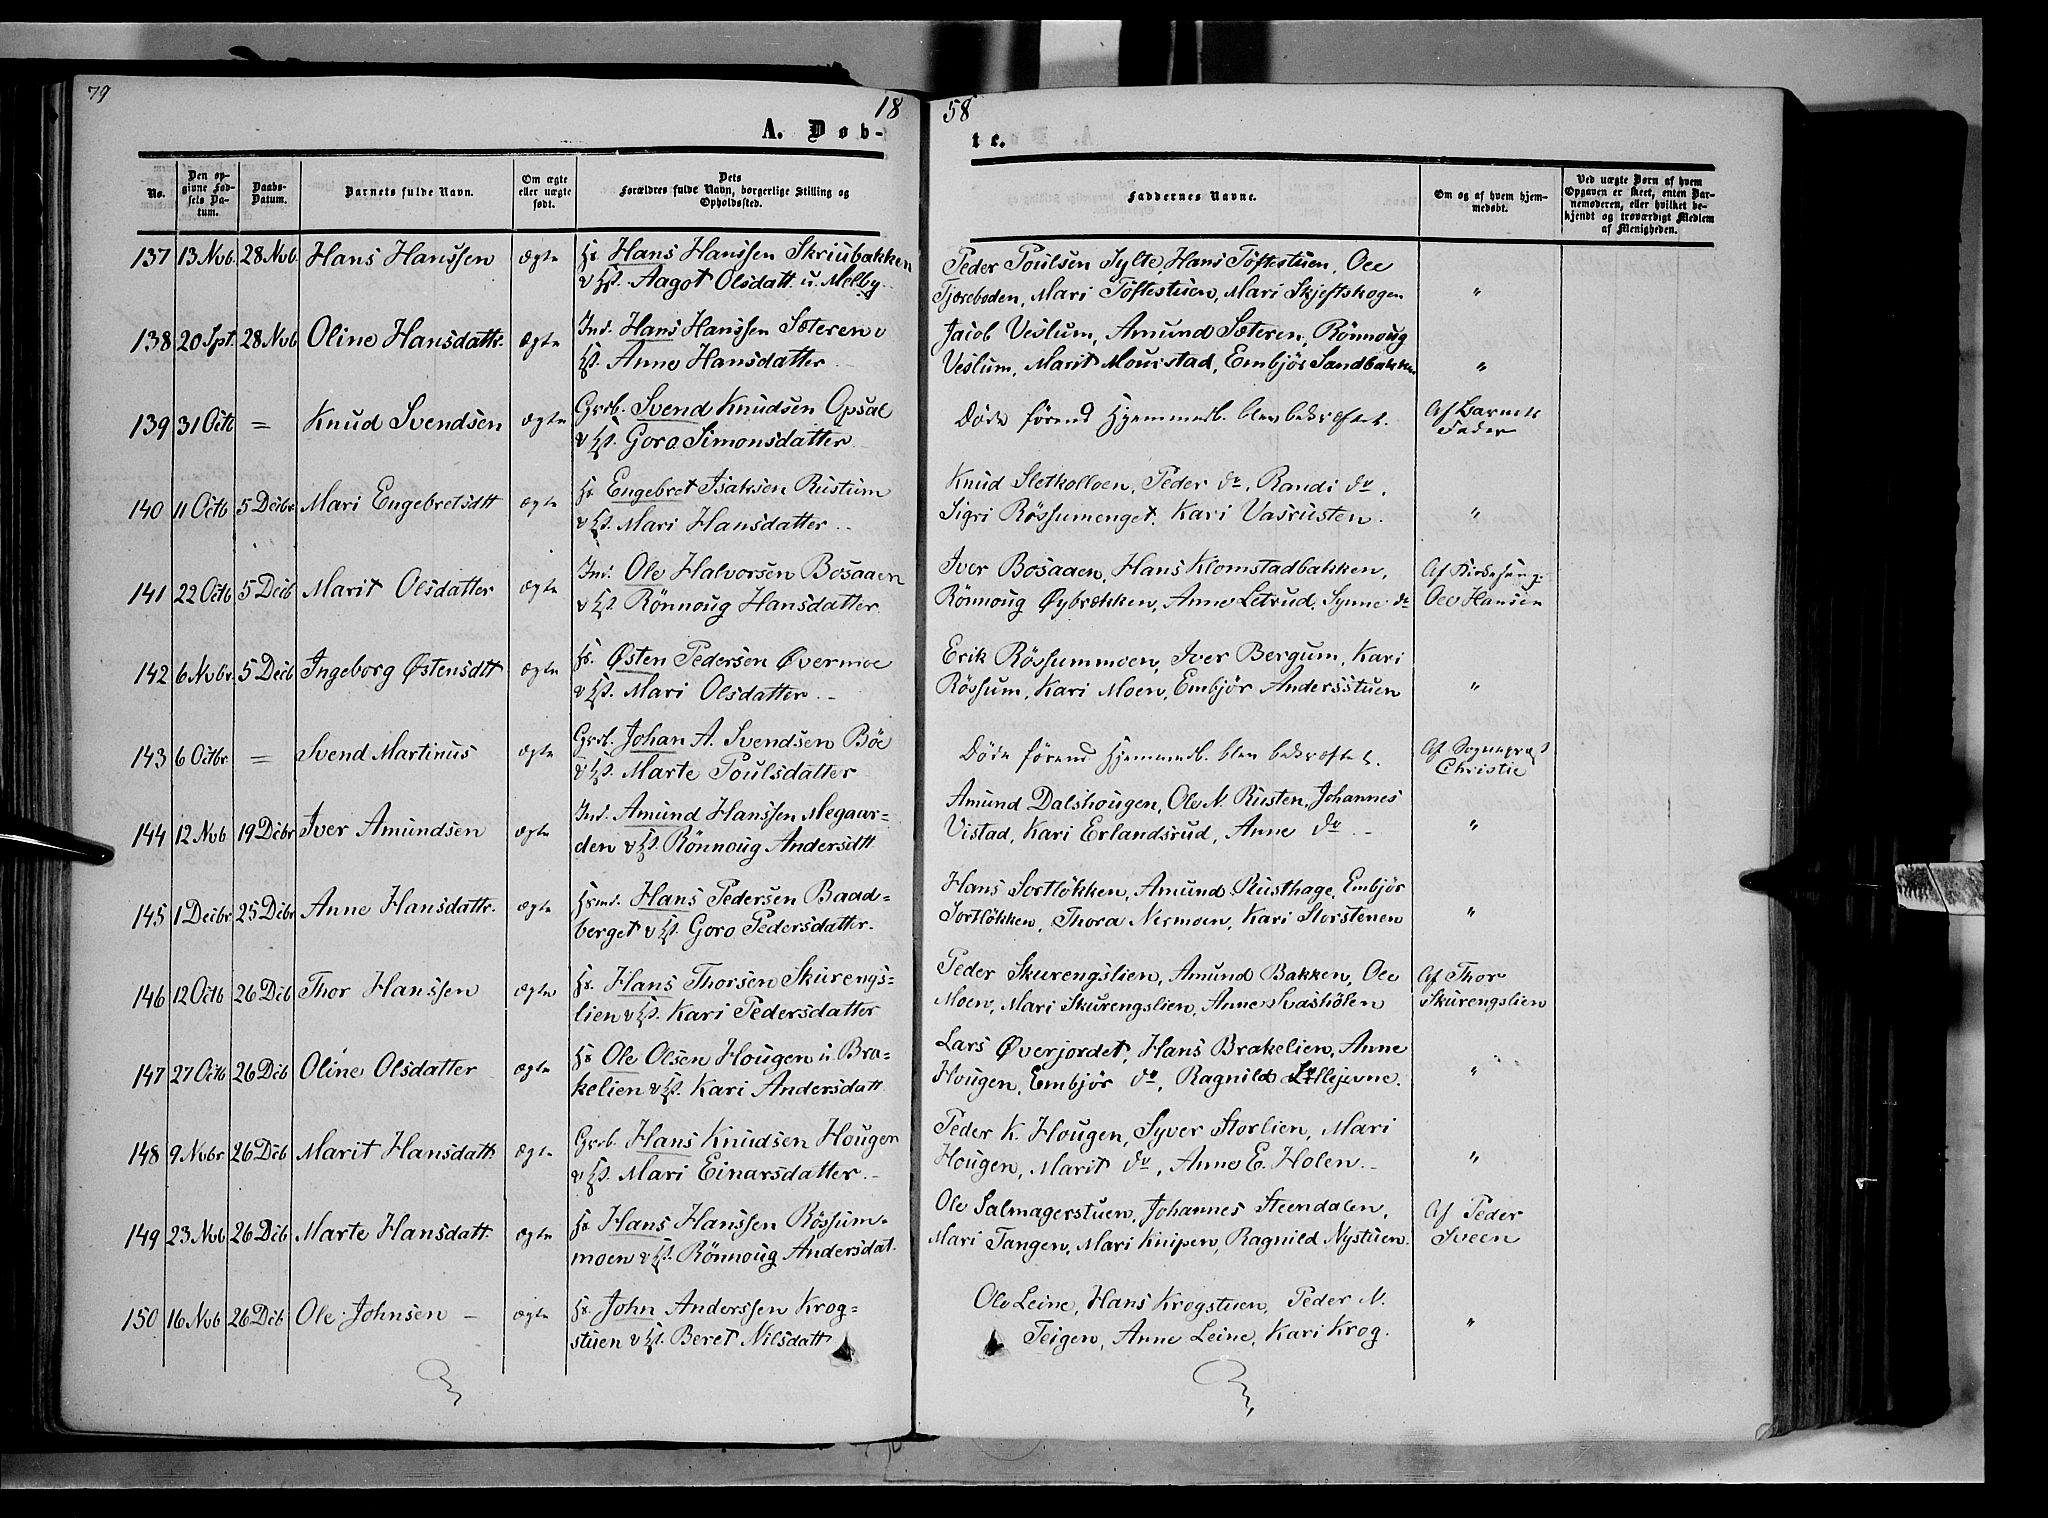 79
18
58
A. Døb-
te.
No.
Den op-
givne Fød-
sels Da-
tum.
Daabs-
Datum.
Barnets fulde Navn.
Om ægte
eller uægte
født.
Dets
Forældres fulde Navn, borgerlige Stilling og
Opholdssted.
Faddernes Navne.
Om og af hvem hjem-
medøbt.
Ved uægte Børn af hvem
Opgaven er skeet, enten Bar-
nemoderen, eller hvilket be-
kjendt og troværdigt Medlem
af Menigheden.
137 13 Nvb. 28 Nvb. Hans Hanssen ægte Hans Hanssen Skriubakken
Aagot Olsdatt. u. Melby.
Peder Poulsen Sylte, Hans Töftestuen, Ole
Tjæreboden, Mari Töftestuen, Mari Skjeftskogen "
138 20 Spt. 28 Nvb Oline Hansdattr. ægte Ind. Hans Hanssen Sæteren v
Anne Hansdatter.
Jacob Veslum, Amund Sæteren, Rönnoug
Veslum, Marit Mourstad, Embjör Sandbakken "
139 31 Octb = Knud Svendsen ægte Grdb. Svend Knudsen Opsal
Goro Simonsdatter
Døde førend Hjemmedb. blev bekræftet. Af Barnets
Fader
140 11 Octb 5 Decbr Mari Engebretsdtt ægte Engebret Isaksen Rustum
Mari Hansdatter
Knud Sletkolloen, Peder do, Randi do,
Sigri Rössumenget, Kari Vasrusten. "
141 22 Octb 5 Decb Marit Olsdatter ægte Ind. Ole Halvorsen Bosaaen
Rönnoug Hansdatter.
Iver Bosaaen, Hans Klomstadbakken,
Rönnoug Øybrækken, Anne Letrud, Synne do
Af Kirkesang.
Ole Hansen
142 6 Nvbr. 5 Decb Ingeborg Østensdtt ægte Østen Pedersen Øvermoe
Mari Olsdatter.
Erik Rössummoen, Iver Bergum, Kari
Rössum, Kari Moen, Embjör Andersstuen "
143 6 Octbr = Svend Martinus ægte Grdb. Johan A. Svendsen Böe
Marte Poulsdatter
Døde førend Hjemmedb. blev bekræftet. Af Sognepræst
Christie
144 12 Nvb 19 Dcbr Iver Amundsen ægte Ind. Amund Hanssen Megaar-
den Rönnoug Andersdtt
Amund Dalshougen, Ole N. Rusten, Johannes
Vistad, Kari Erlandsrud, Anne do "
145 1 Decbr 25 Dcbr Anne Hansdattr. ægte Hans Pedersen Baad-
berget Goro Pedersdatter.
Hans Sortlökken, Amund Rusthage, Embjör
Sortlökken, Thora Nermoen, Kari Storstenen "
146 12 Octb 26 Dcb Thor Hanssen ægte Hans Thorsen Skurengs-
lien Kari Pedersdatter
Peder Skurengslien, Amund Bakken, Ole
Moen, Mari Skurengslien, Anne Svashölen
Af Thor
Skurengslien
147 27 Octb 26 Dcb Oline Olsdatter ægte Ole Olsen Hougen u. Bra-
kelien Kari Andersdatt
Lars Øverjordet, Hans Brakelien, Anne
Hougen, Embjör do, Ragnild Lillejevne. "
148 9 Nvbr 26 Dcb Marit Hansdatt. ægte Grdb. Hans Knudsen Hougen
Mari Einarsdatter
Peder K. Hougen, Syver Storlien, Mari
Hougen, Marit do, Anne E. Holen. "
149 23 Nvb 26 Dcb Marte Hansdatt. ægte Hans Hanssen Rössum-
moen Rönnoug Andersdat.
Ole Salmagerstuen, Johannes Steendalen,
Mari Tangen, Mari Knipen, Ragnild Nystuen.
Af Peder
Sveen
150 16 Nvb 26 Dcb Ole Johnsen ægte John Anderssen Krog-
stuen Beret Nilsdatt
Ole Leine, Hans Krogstuen, Peder N.
Teigen, Anne Leine, Kari Krog. "